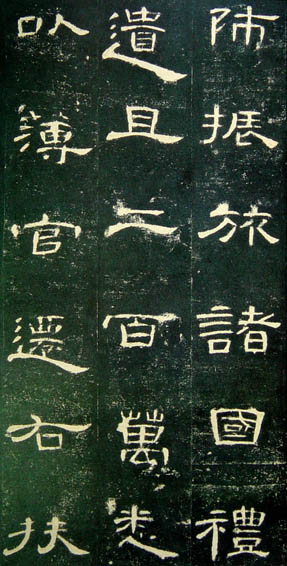 師振旅諸國禮
遺且二百萬悉
以簿官遷右扶